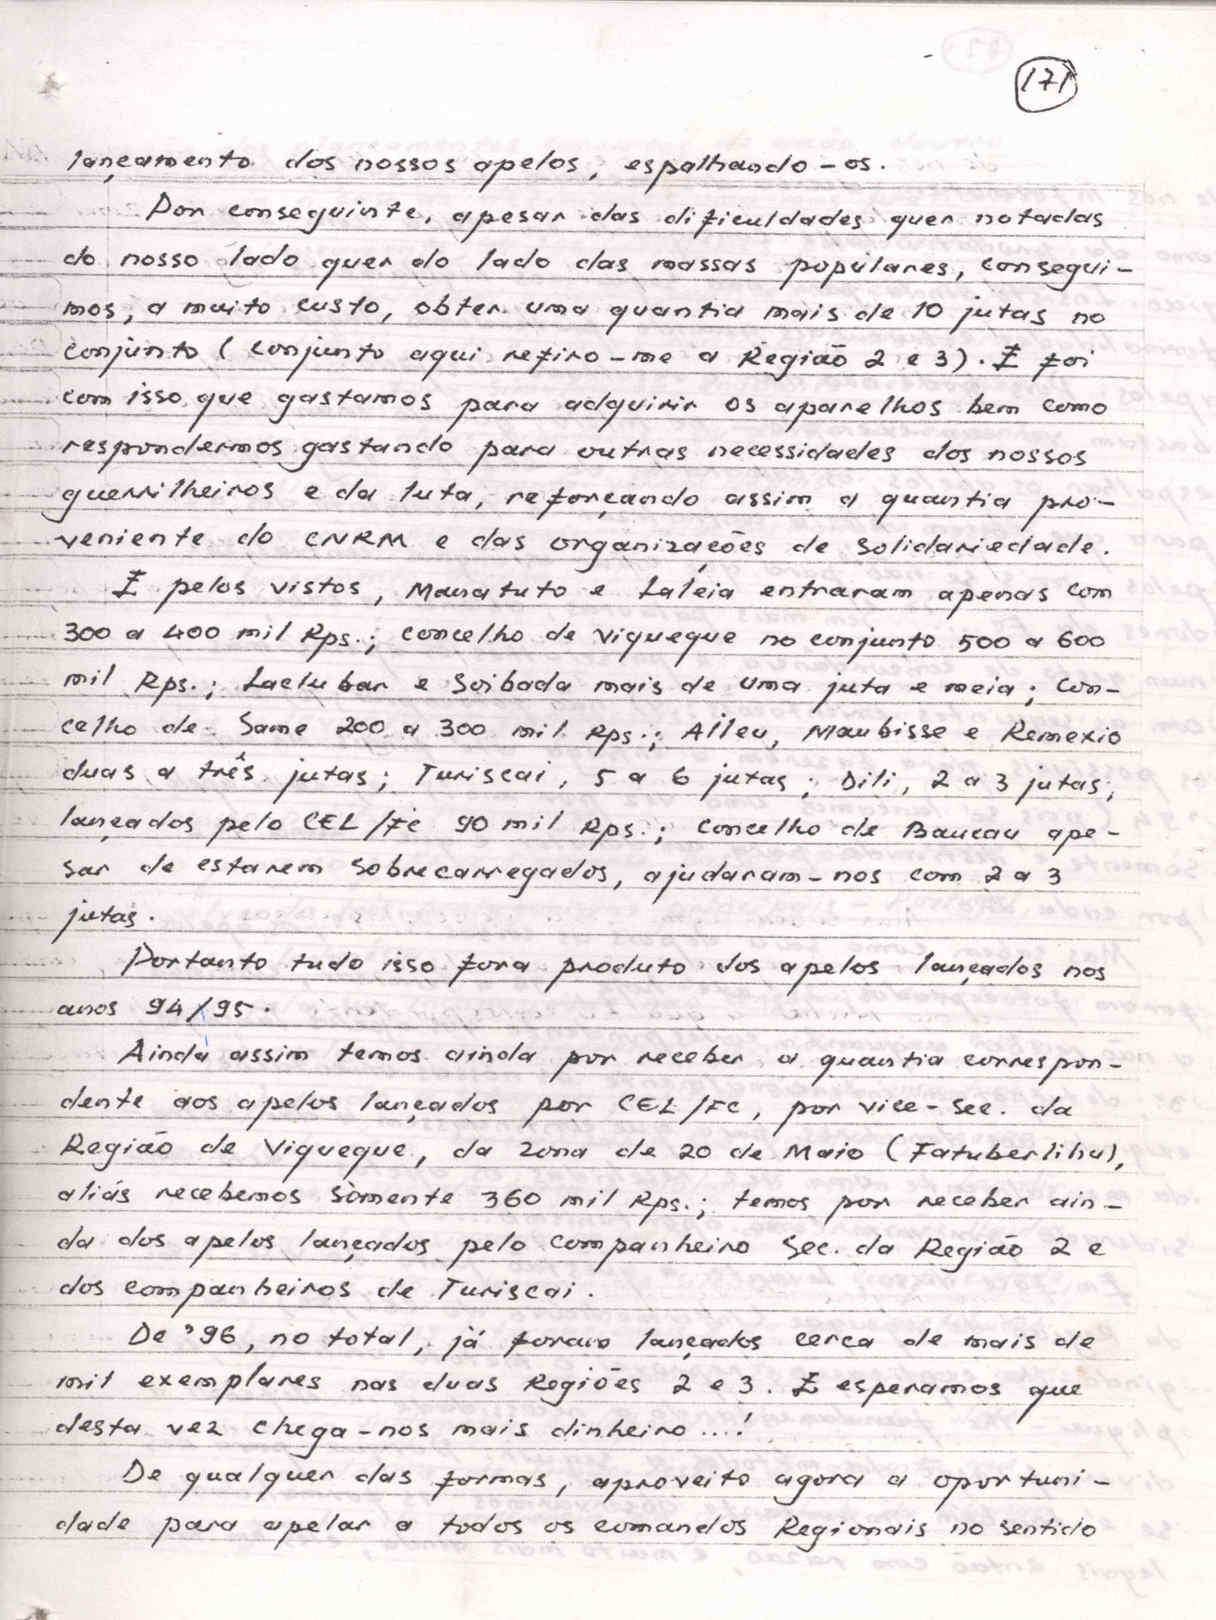 171
lançamento dos nossos apelos, espalhando-os.
Por conseguinte, apesar das dificuldades quer notadas
do nosso lado quer do lado das massas populares, consegui-
mos, a muito custo, obter uma quantia mais de 10 jutas no
conjunto (conjunto aqui refiro-me a Região 2 e 3). E foi
com isso que gastamos para adquirir os aparelhos bem como
respondermos gastando para outras necessidades dos nossos
guerrilheiros e da luta, reforçando assim a quantia pro-
veniente do CNRM e das organizações de solidariedade.
E pelos vistos, Manatuto e Laleia entraram apenas com
300 a 400 mil Rps.; concelho de Viqueque no conjunto 500 a 600
mil Rps.; Laclubar e Soibada mais de uma juta e meia; con-
celho de Same 200 a 300 mil Rps.; Aileu, Maubisse e Remexio
duas a três jutas; Turiscai, 5 a 6 jutas; Dili, 2 a 3 jutas;
lançados pelo CEL/FC 90 mil Rps.; concelho de Baucau ape-
sar de estarem sobrecarregados, ajudaram-nos com 2 a 3
jutas.
Portanto tudo isso fora produto dos apelos lançados nos
anos 94/95.
Ainda assim temos ainda por receber a quantia correspon-
dente aos apelos lançados por CEL/FC, por vice-sec. da
Região de Viqueque, da zona de 20 de Maio (Fatuberlihu),
aliás recebemos sòmente 360 mil Rps.; temos por receber ain-
da dos apelos lançados pelo companheiro Sec. da Região 2 e
dos companheiros de Turiscai.
De '96, no total, já foram lançados cerca de mais de
mil exemplares nas duas Regiões 2 e 3. E esperamos que
desta vez chega-nos mais dinheiro...!
De qualquer das formas, aproveito agora a oportuni-
dade para apelar a todos os comandos Regionais no sentido